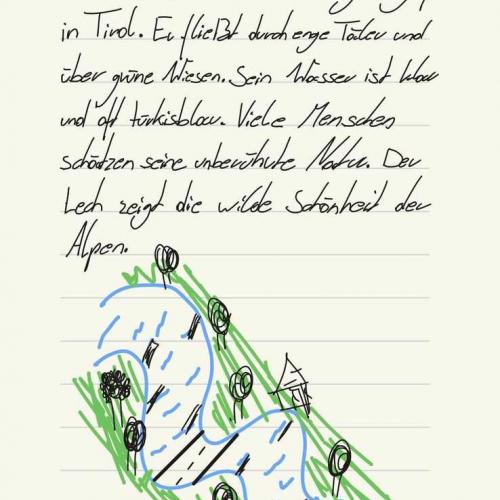 in Tirol. Er fließt durch enge Täler und
über grüne Wiesen. Sein Wasser ist klar
und oft türkisblau. Viele Menschen
schätzen seine unberührte Natur. Der
Lech zeigt die wilde Schönheit der
Alpen.